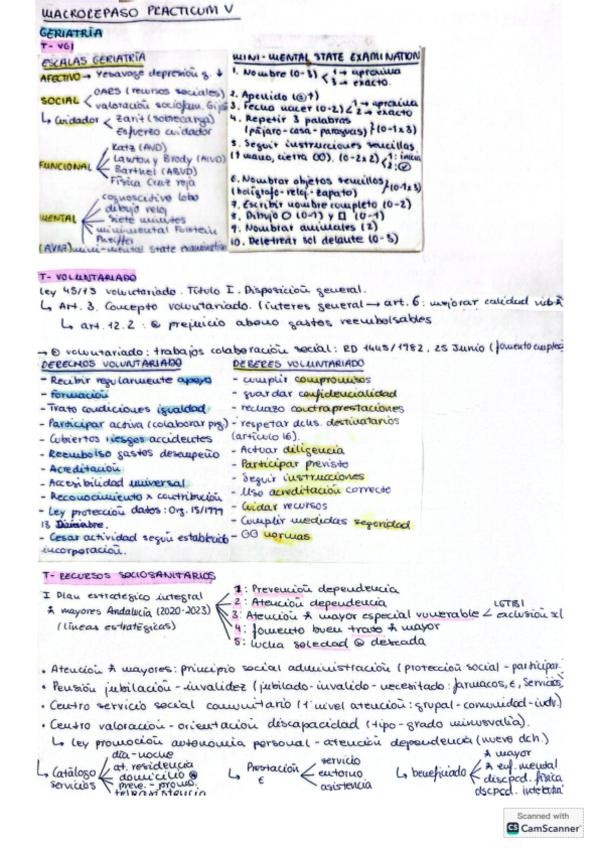 MACROREPASO PRACTICUM V
GERIATRÍA
T- VGI
ESCALAS GERIATRÍA
AFECTIVO → Yesavage depresión g. ↓
SOCIAL < OARS (recursos sociales)
valoración sociofam. Gijó
↳ Cuidador < Zarit (sobrecarga)
Esfuerzo cuidador
FUNCIONAL
Katz (AVD)
Lawton y Brody (AIVD)
Barthel (ABVD)
Física Cruz roja
MENTAL
cognoscitivo lobo
dibujo reloj
siete minutos
minimental Folstein
Pfeiffer
mini-mental state examination
MINI-MENTAL STATE EXAMINATION
1. Nombre (0-3) < 1 → aproxima
3 → exacto.
2. Apellido
3. Fecha nacer (0-2) < 1 → aproxima
2 → exacto
4. Repetir 3 palabras
(pájaro-casa-paraguas) (0-1x3)
5. Seguir instrucciones sencillas
(1 mano, cierra 👁👁). (0-2x2)
6. Nombrar objetos sencillos
(bolígrafo-reloj-zapato) (0-1x3)
7. Escribir nombre completo (0-2)
8. Dibujo ○ (0-1) y □ (0-1)
9. Nombrar animales (2)
10. Deletrear sol delante (0-3)
T- VOLUNTARIADO
ley 45/15 voluntariado. Título I. Disposición general.
↳ Art. 3. Concepto voluntariado. (interes general → art. 6: mejorar calidad vida
↳ art. 12.2: prejuicio abono gastos reembolsables
→ voluntariado: trabajos colaboración social: RD 1445/1982, 25 Junio (fomento empleo
DERECHOS VOLUNTARIADO
- Recibir regularmente apoyo
- Formación
- Trato condiciones igualdad
- Participar activa (colaborar prg)
- Cubiertos riesgos accidentes
- Reembolso gastos desempeño
- Acreditación
- Accesibilidad universal
- Reconocimiento x contribución
- Ley protección datos: Org. 15/1999
13 Diciembre.
- Cesar actividad según establecido
incorporación.
DEBERES VOLUNTARIADO
- cumplir compromisos
- guardar confidencialidad
- rechazo contraprestaciones
- respetar dchs. destinatarios
(artículo 16).
- Actuar diligencia
- Participar previsto
- Seguir instrucciones
- Uso acreditación correcto
- Cuidar recursos
- Cumplir medidas seguridad
- normas
T- RECURSOS SOCIOSANITARIOS
I Plan estratégico integral
mayores Andalucía (2020-2023)
(líneas estratégicas)
1: Prevención dependencia
2: Atención dependencia
3: Atención mayor especial vunerable < LGTBI
exclusión sl
4: fomento buen trato mayor
5: lucha soledad deseada
• Atención mayores: principio social administración (protección social - participar
• Pensión jubilación - invalidez (jubilado - invalido - necesitado: farmacos, €, servicios
• Centro servicio social comunitario (1º nivel atención: grupal - comunidad - indv.)
• Centro valoración - orientación discapacidad (tipo-grado minusvalía).
↳ ley promoción autonomia personal - atención dependencia (nuevo dch.)
↳ Catálogo servicios
día-noche
at. residencia
domicilio
preve. - promo.
teleasistencia
↳ Prestación €
servicio
entorno
asistencia
↳ beneficiado
mayor
enf. mental
discpcd. física
dscpcd. intelectual
Scanned with
CS CamScanner